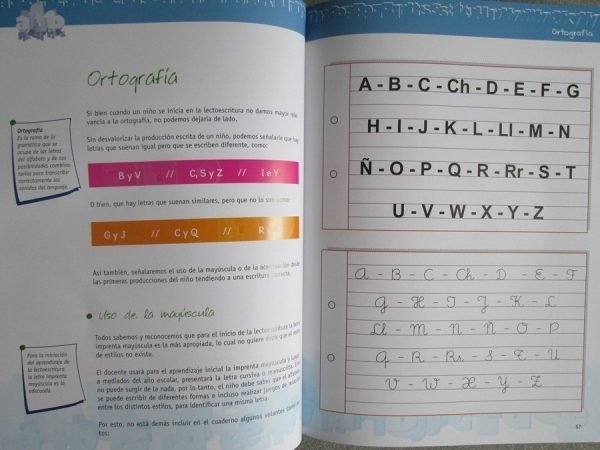 Ortografía
Si bien cuando un niño se inicia en la lectoescritura no damos mayor rele
vancia a la ortografía, no podemos dejarla de lado.
Ortografía
Es la rama de la
gramática que se
ocupa de las letras
del alfabeto y de sus
posibilidades combina
torias para transcribir
correctamente los
sonidos del lenguaje.
Sin desvalorizar la producción escrita de un niño, podemos señalarle que hay
letras que suenan igual pero que se escriben diferente, como:
B y V // C, S y Z // I e Y
O bien, que hay letras que suenan similares, pero que no lo son
G y J // C y Q // R
Así también, señalaremos el uso de la mayúscula o de la acentuación desde
las primeras producciones del niño tendiendo a una escritura correcta.
Uso de la mayúscula
Todos sabemos y reconocemos que para el inicio de la lectoescritura la letra
imprenta mayúscula es la más apropiada, lo cual no quiere decir que el resto
de estilos no exista.
Para la iniciación
del aprendizaje de
la lectoescritura,
la letra imprenta
mayúscula es la
adecuada.
El docente usará para el aprendizaje inicial la imprenta mayúscula y luego
a mediados del año escolar, presentará la letra cursiva o manuscrita. Esto
no puede surgir de la nada, por lo tanto, el niño debe saber que el alfabeto
se puede escribir de diferentes formas e incluso realizar juegos de relación
entre los distintos estilos, para identificar una misma letra.
Por esto, no está demás incluir en el cuaderno algunos volantes como
Ortografía
A - B - C - Ch - D - E - F - G
H - I - J - K - L - Ll - M - N
Ñ - O - P - Q - R - Rr - S - T
U - V - W - X - Y - Z
A - B - C - Ch - D - E - F
G - H - I - J - K - L
Ll - M - N - Ñ - O - P
Q - R - Rr - S - T - U
V - W - X - Y - Z
57